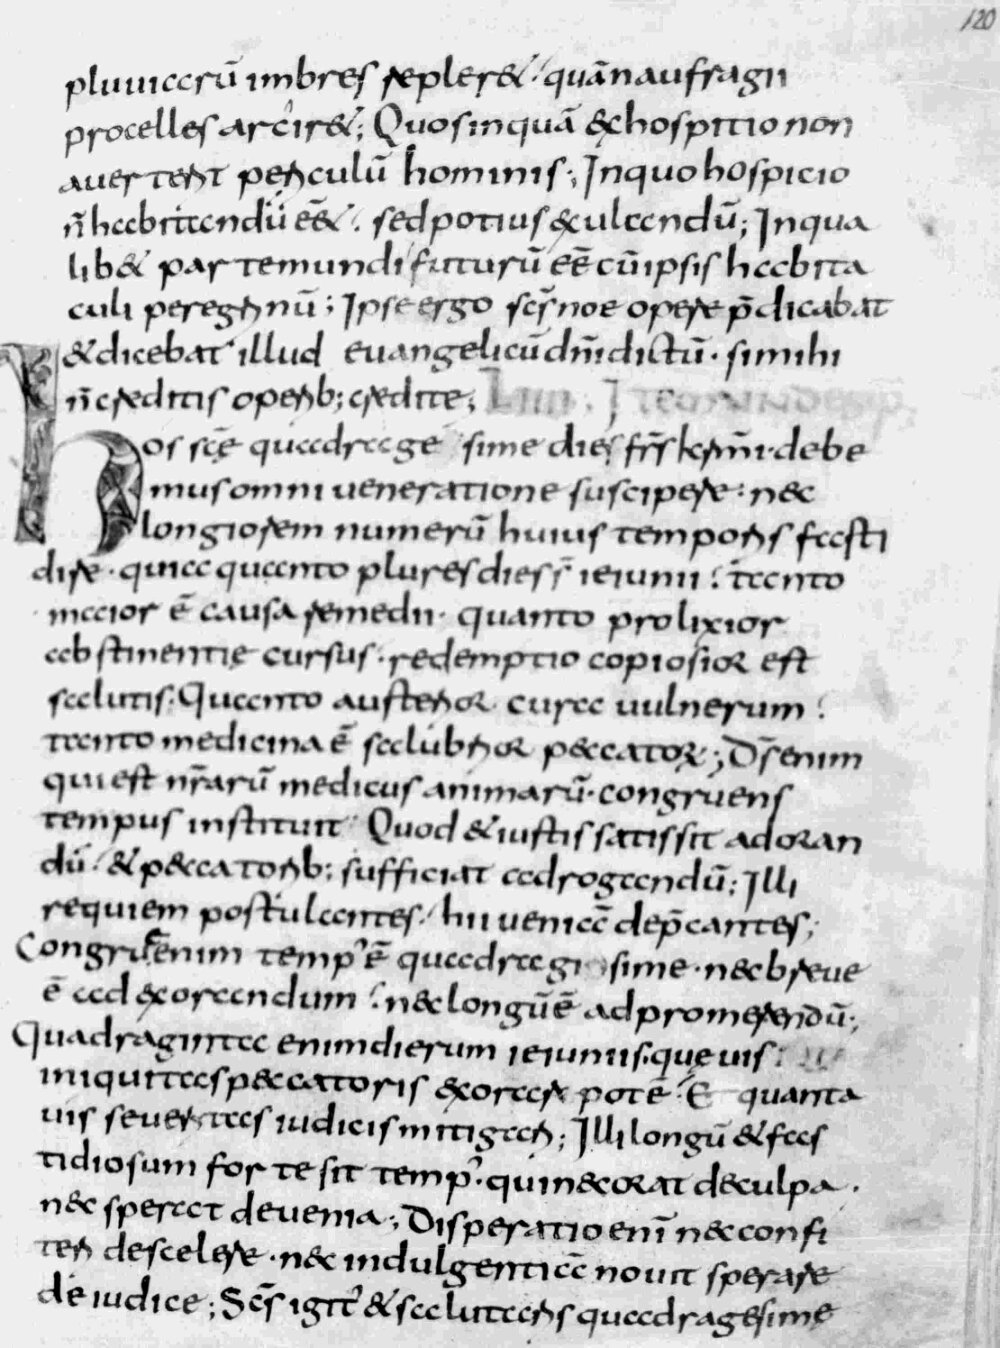 120
pluuiarū imbres repleret. quā naufragii
procelles arcꝰiret; Quos inquā ex hospitio non
auertent periculū hominis; In quo hospicio
n̄ habitandū eēt. sed potius exulandū; In qua
libet parte mundi futurū eē cū ipsis habita
culi peregrinū; Ipse ergo scs̄ noe opere p̄dicabat
& dicebat illud euangelicū dn̄i dictū. si mihi
n̄ creditis operib; credite;
Hos scē quadragę sime dies frs̄ kr̄mi. debe
mus omni ueneratione suscipere. nec
longiorem numerū huius temporis fasti
dire. quia quanto plures dies s̄ ieiunii. tanto
maior ē causa remedii. quanto prolixior
abstinentię cursus. redemptio copiosior est
salutis. Quanto austerior cura uulnerum.
tanto medicina ē salubrior peccatorꝝ; Ds̄ enim
qui est nr̄arū medicus animarū. congruens
tempus instituit Quod & iustis satis sit ad oran
dū. & peccatorib; sufficiat ad rogandū; Illi
requiem postulantes. hii ueniā dep̄cantes;
Congruē enim tempꝰ ē quadragi sime. nec breue
ē ad exorandum. nec longū ē ad promerendū;
Quadraginta enim dierum ieiuniis. que uis
iniquitas peccatoris exorare potē. Et quanta
uis seueritas iudicis mitigari; Illi longū & fas
tidiosum forte sit tempꝰ. qui nec orat de culpa.
nec sperat de uenia; Disperatio eni̅ nec confi
teri de scelere. nec indulgentiā nouit sperare
de iudice; Scs̄ igitꝰ & salutaris quadragesime